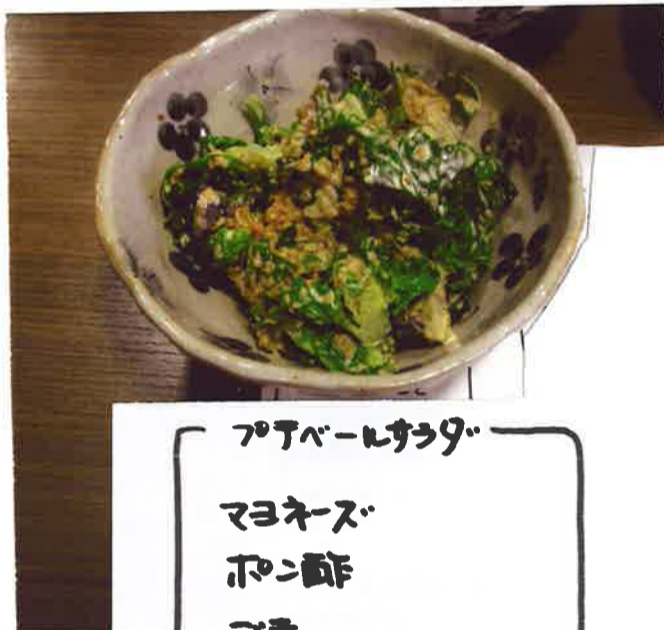 プチベールサラダ
マヨネーズ
ポン酢